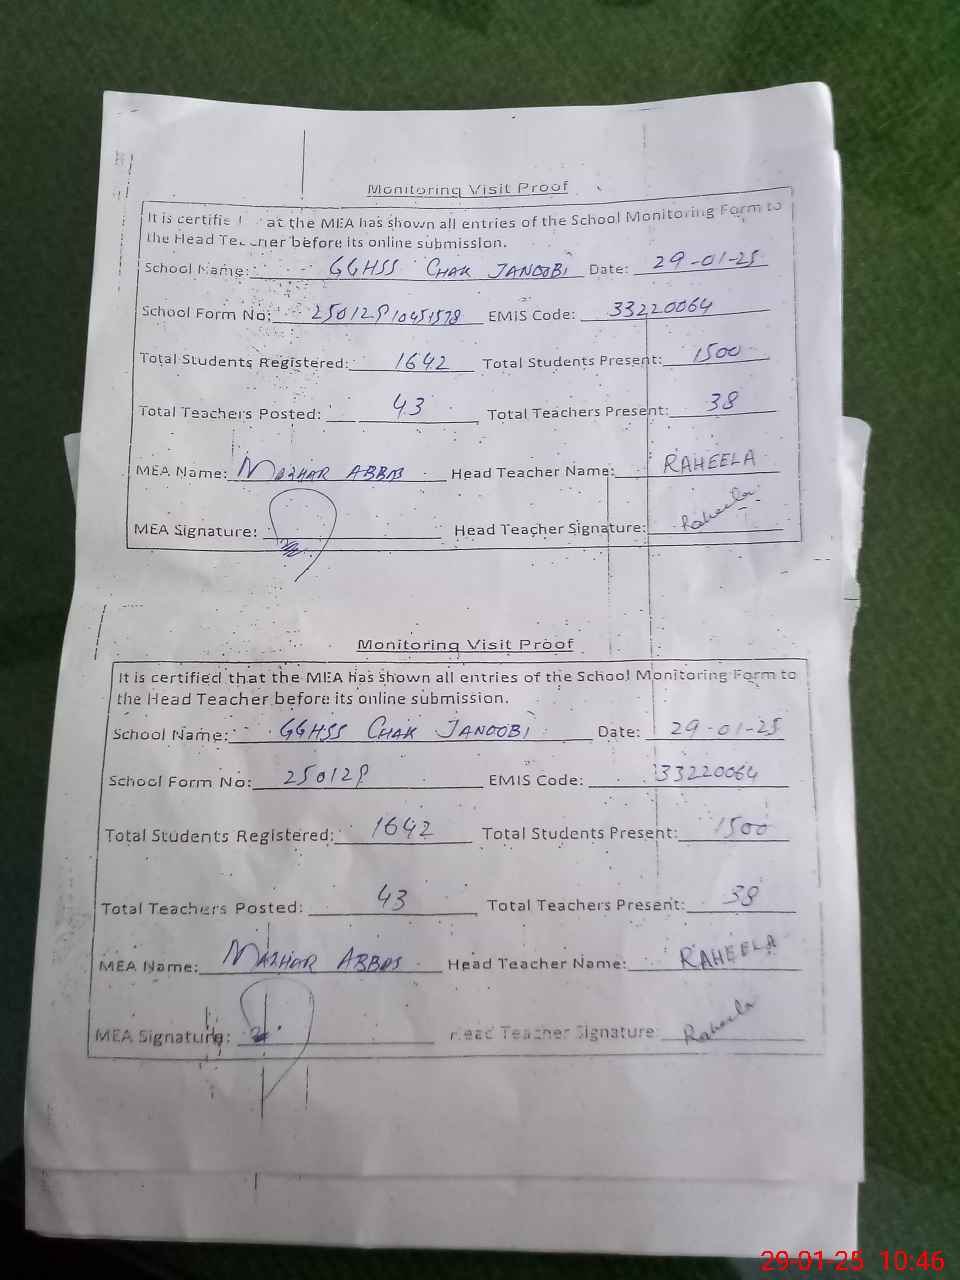 Monitoring Visit Proof
It is certifie at the MEA has shown all entries of the School Monitoring Form to
the Head Teacher before its online submission.
School Name: GGHSS CHAK JANOOBI Date: 29-01-25
School Form No: EMIS Code: 33220064
Total Students Registered: 1642 Total Students Present: 1500
Total Teachers Posted: 43 Total Teachers Present: 38
MEA Name: MAZHAR ABBAS Head Teacher Name: RAHEELA
MEA Signature: Head Teacher Signature: Raheela
Monitoring Visit Proof
It is certified that the MEA has shown all entries of the School Monitoring Form to
the Head Teacher before its online submission.
School Name: GGHSS CHAK JANOOBI Date: 29-01-25
School Form No: EMIS Code: 33220064
Total Students Registered: 1642 Total Students Present: 1500
Total Teachers Posted: 43 Total Teachers Present: 38
MEA Name: MAZHAR ABBAS Head Teacher Name: RAHEELA
MEA Signature: Head Teacher Signature: Raheela
29-01-25 10:46